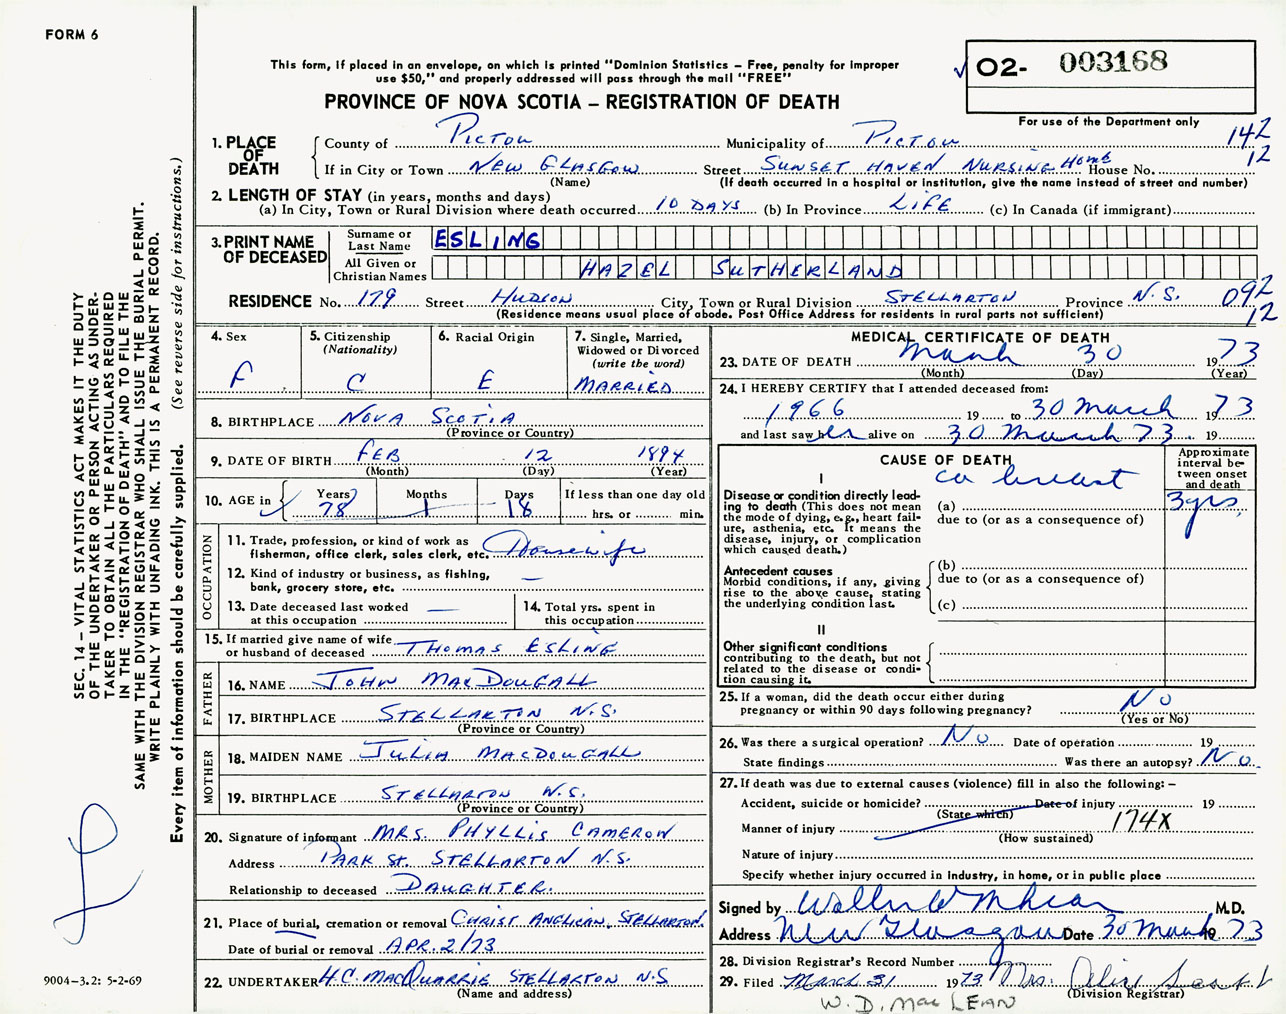 FORM 6
This form, if placed in an envelope, on which is printed "Dominion Statistics – Free, penalty for improper
use $50," and properly addressed will pass through the mail "FREE"
PROVINCE OF NOVA SCOTIA – REGISTRATION OF DEATH
✓ O2- 003168
For use of the Department only
1. PLACE OF DEATH
County of PICTOU Municipality of PICTOU 142
If in City or Town NEW GLASGOW Street SUNSET HAVEN NURSING HOME House No. 12
(Name) (If death occurred in a hospital or institution, give the name instead of street and number)
2. LENGTH OF STAY (in years, months and days)
(a) In City, Town or Rural Division where death occurred 10 DAYS (b) In Province LIFE (c) In Canada (if immigrant)
3. PRINT NAME OF DECEASED
Surname or Last Name ESLING
All Given or Christian Names HAZEL SUTHERLAND
RESIDENCE No. 179 Street HUDSON City, Town or Rural Division STELLARTON Province N.S. 092
12
(Residence means usual place of abode. Post Office Address for residents in rural parts not sufficient)
4. Sex F
5. Citizenship (Nationality) C
6. Racial Origin E
7. Single, Married, Widowed or Divorced (write the word) MARRIED
8. BIRTHPLACE NOVA SCOTIA
(Province or Country)
9. DATE OF BIRTH FEB 12 1894
(Month) (Day) (Year)
10. AGE in Years 78 Months 1 Days 18 If less than one day old
hrs. or min.
OCCUPATION
11. Trade, profession, or kind of work as
fisherman, office clerk, sales clerk, etc. Housewife
12. Kind of industry or business, as fishing,
bank, grocery store, etc. —
13. Date deceased last worked
at this occupation —
14. Total yrs. spent in
this occupation
15. If married give name of wife
or husband of deceased THOMAS ESLING
FATHER
16. NAME JOHN MACDOUGALL
17. BIRTHPLACE STELLARTON N.S.
(Province or Country)
MOTHER
18. MAIDEN NAME JULIA MACDOUGALL
19. BIRTHPLACE STELLARTON N.S.
(Province or Country)
20. Signature of informant MRS. PHYLLIS CAMERON
Address PARK ST. STELLARTON N.S.
Relationship to deceased DAUGHTER.
21. Place of burial, cremation or removal CHRIST ANGLICAN, STELLARTON.
Date of burial or removal APR. 2/73
22. UNDERTAKER H.C. MACQUARRIE STELLARTON N.S
(Name and address)
MEDICAL CERTIFICATE OF DEATH
23. DATE OF DEATH March 30 1973
(Month) (Day) (Year)
24. I HEREBY CERTIFY that I attended deceased from:
1966 19 to 30 March 1973
and last saw her alive on 30 March 73 19
CAUSE OF DEATH
Approximate interval between onset and death
I
Disease or condition directly leading to death (This does not mean the mode of dying, e.g., heart failure, asthenia, etc. It means the disease, injury, or complication which caused death.)
(a) ca breast 3 yrs.
due to (or as a consequence of)
Antecedent causes
Morbid conditions, if any, giving rise to the above cause, stating the underlying condition last.
(b)
due to (or as a consequence of)
(c)
II
Other significant conditions
contributing to the death, but not related to the disease or condition causing it.
25. If a woman, did the death occur either during
pregnancy or within 90 days following pregnancy? No
(Yes or No)
26. Was there a surgical operation? No Date of operation 19
State findings Was there an autopsy? No.
27. If death was due to external causes (violence) fill in also the following: –
Accident, suicide or homicide? Date of injury 19
(State which) 174X
Manner of injury
(How sustained)
Nature of injury
Specify whether injury occurred in industry, in home, or in public place
Signed by M.D.
Address New Glasgow Date 30 March 1973
28. Division Registrar's Record Number
29. Filed March 31 1973 Mrs. Alice Scott
(Division Registrar)
W. D. MacLEAN
SEC. 14 – VITAL STATISTICS ACT MAKES IT THE DUTY
OF THE UNDERTAKER OR PERSON ACTING AS UNDER-
TAKER TO OBTAIN ALL THE PARTICULARS REQUIRED
IN THE "REGISTRATION OF DEATH" AND TO FILE THE
SAME WITH THE DIVISION REGISTRAR WHO SHALL ISSUE THE BURIAL PERMIT.
WRITE PLAINLY WITH UNFADING INK. THIS IS A PERMANENT RECORD.
Every item of information should be carefully supplied. (See reverse side for instructions.)
9004-3.2: 5-2-69